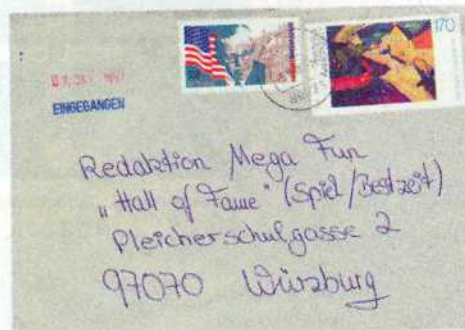 170
1997
EINGEGANGEN
Redaktion Mega Fun
„Hall of Fame" (Spiel/Bestzeit)
Pleicherschulgasse 2
97070 Würzburg